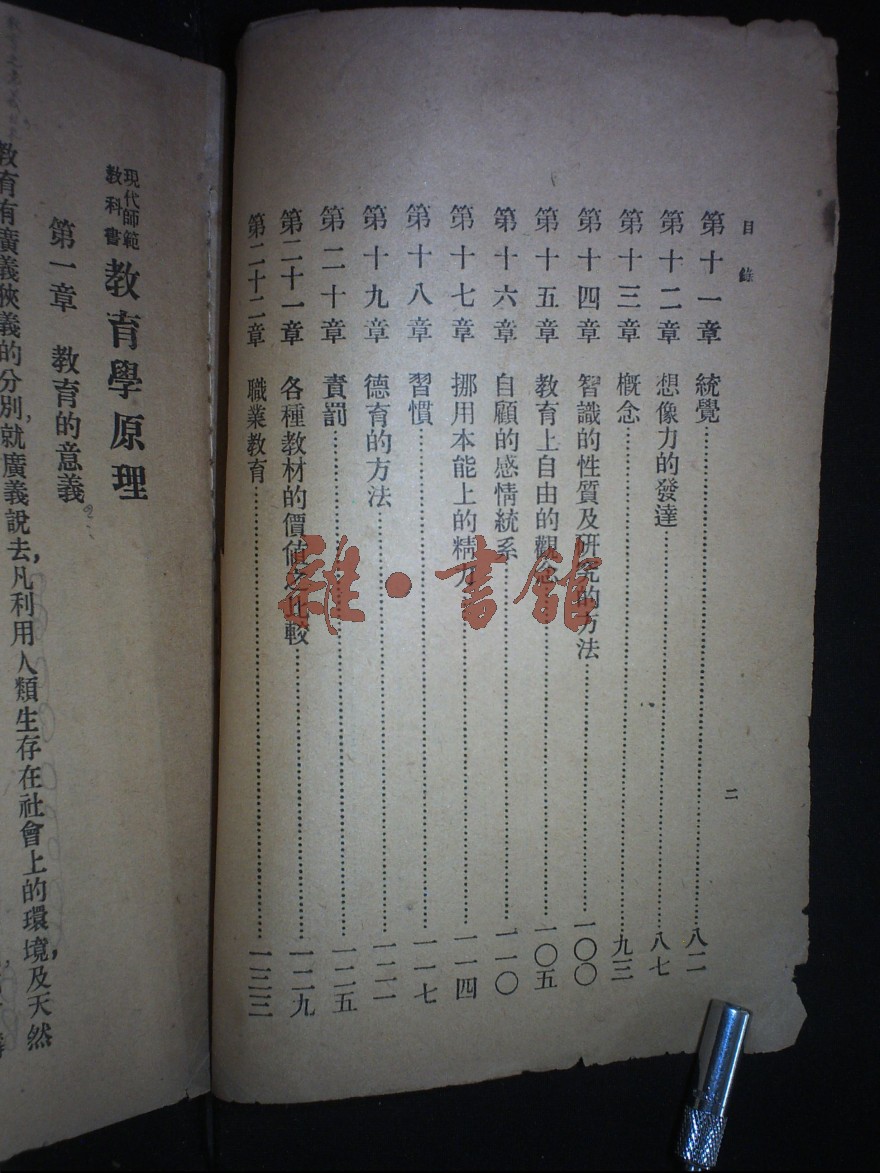 目錄
第十一章 統覺……八二
第十二章 想像力的發達……八七
第十三章 概念……九三
第十四章 智識的性質及研究的方法……一〇〇
第十五章 教育上自由的觀念……一〇五
第十六章 自顧的感情統系……一一〇
第十七章 挪用本能上的精力……一一四
第十八章 習慣……一一七
第十九章 德育的方法……一二二
第二十章 責罰……一二五
第二十一章 各種教材的價值之比較……一二九
第二十二章 職業教育……一三三
二
雜·書館
現代師範
教科書
教育學原理
第一章 教育的意義
教育有廣義狹義的分別,就廣義說去,凡利用人類生存在社會上的環境,及天然